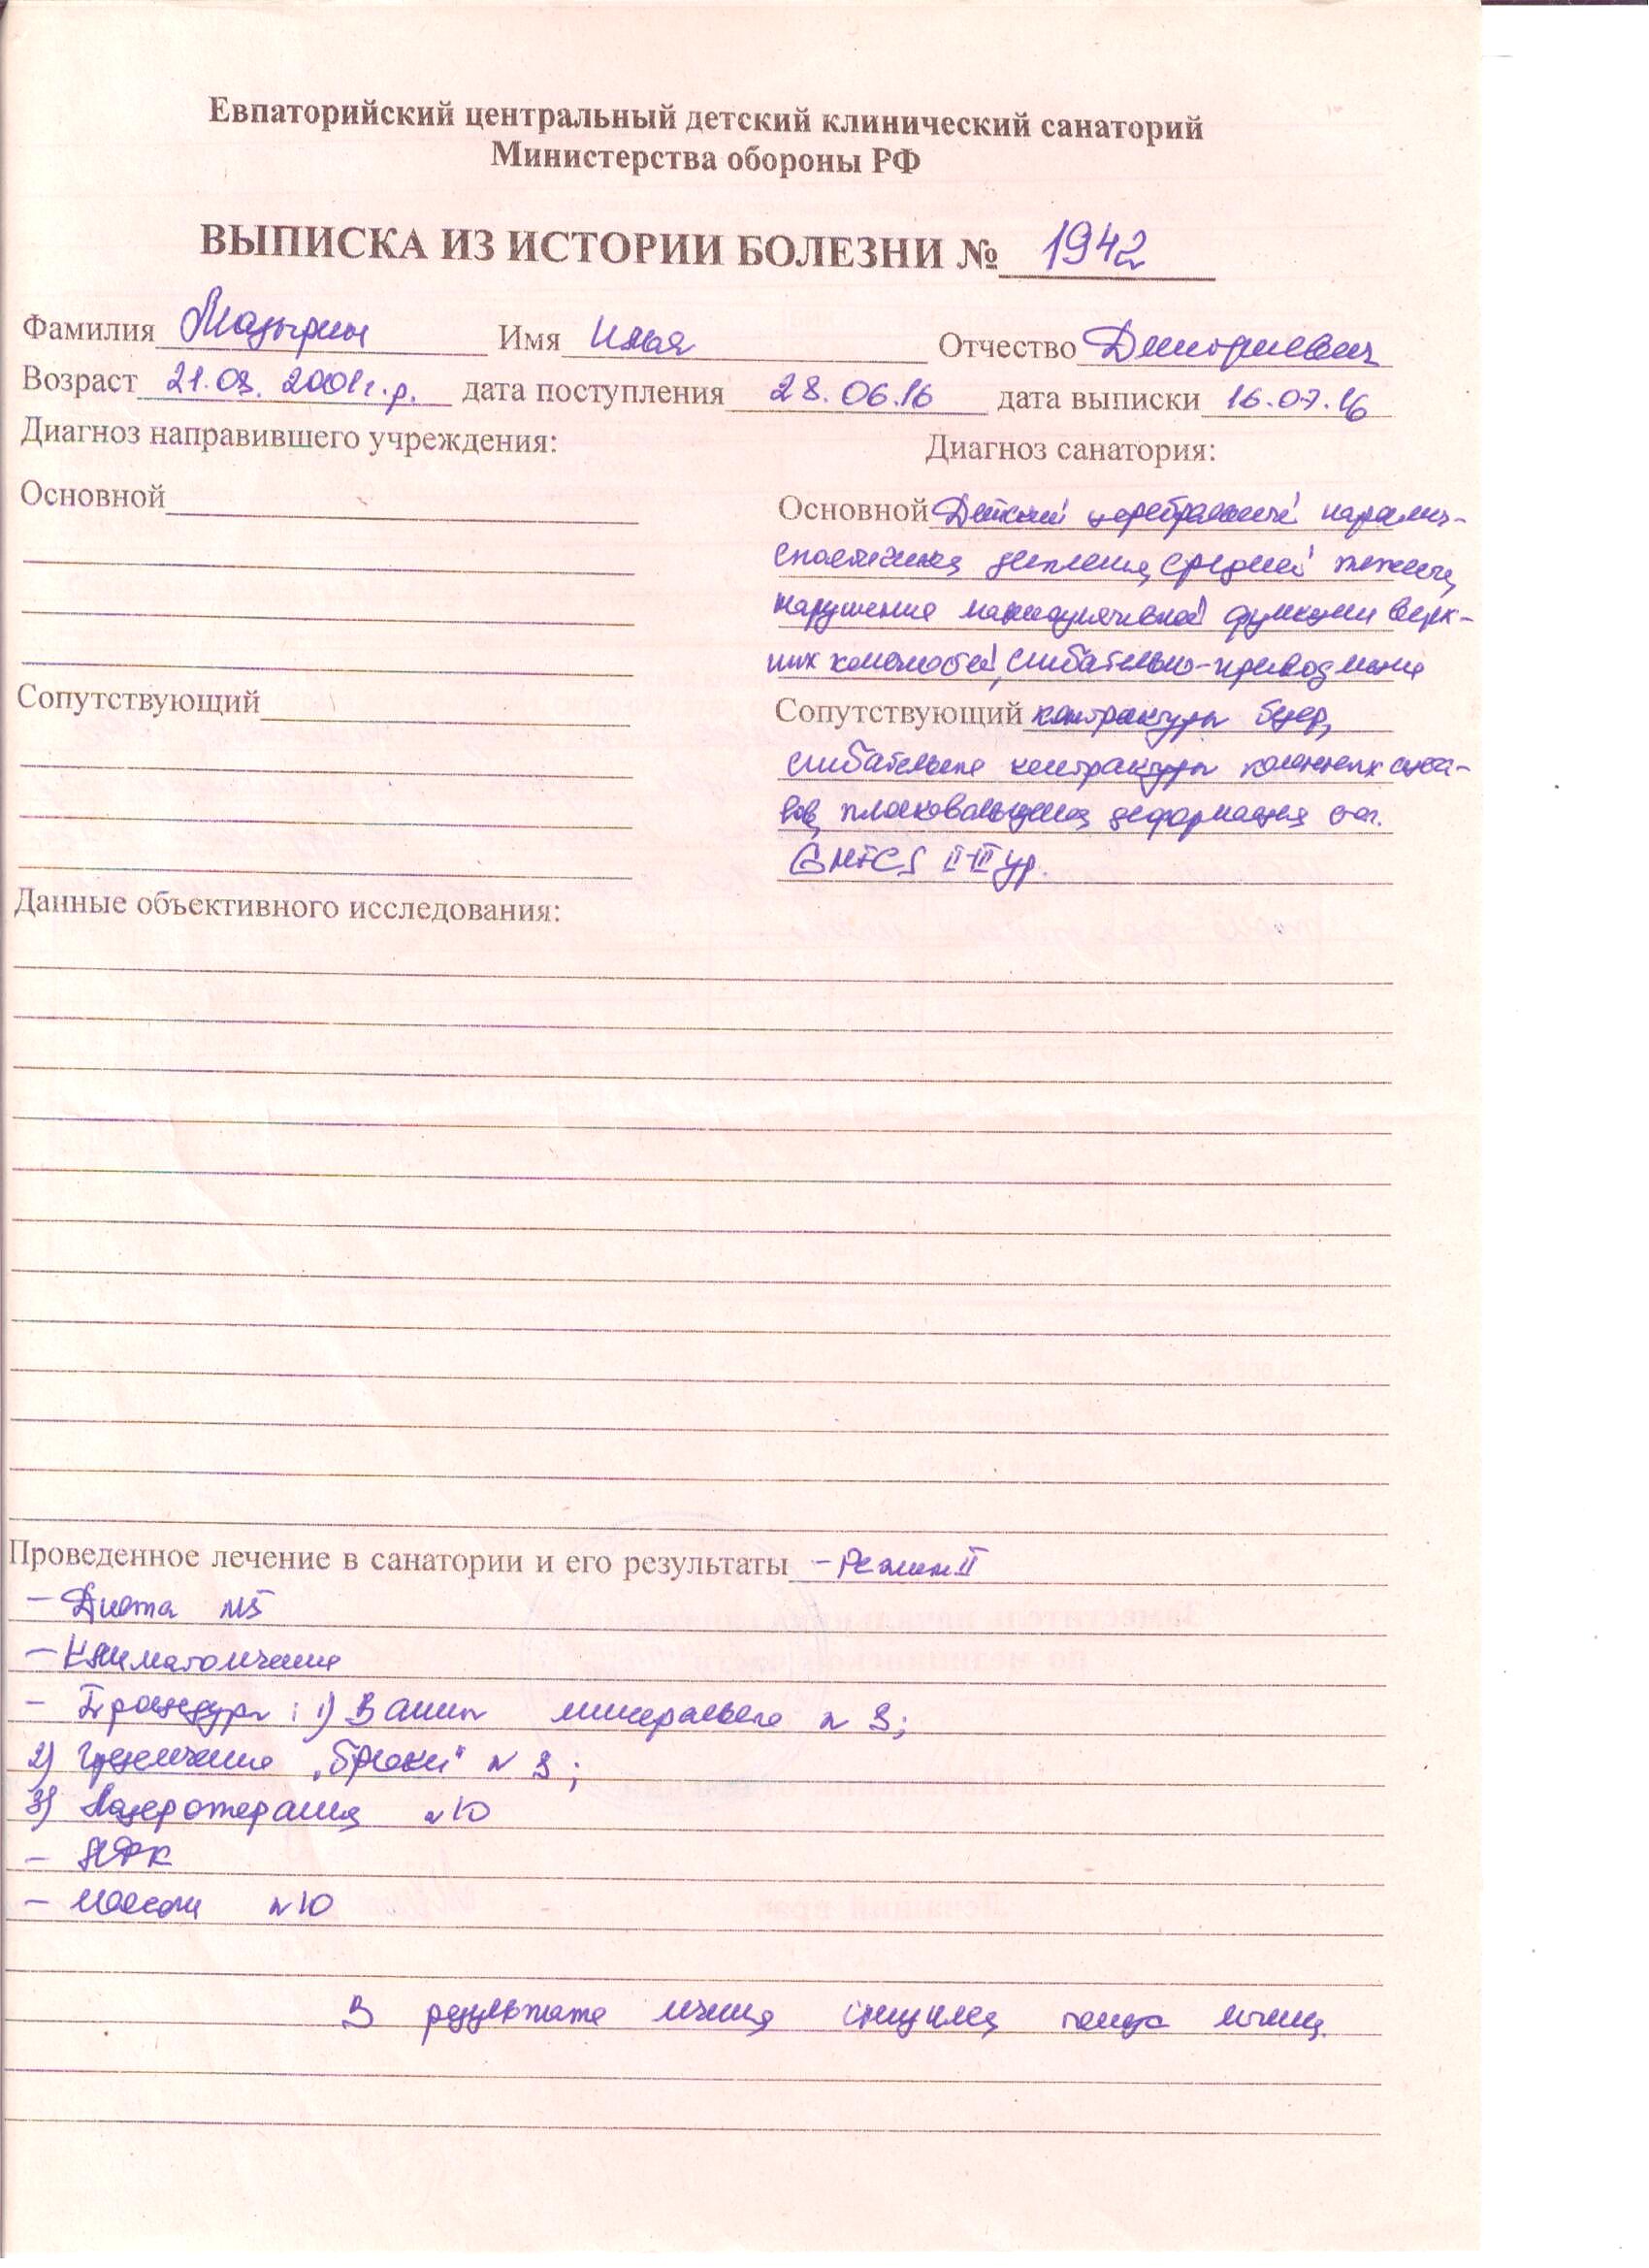 Евпаторийский центральный детский клинический санаторий
Министерства обороны РФ
ВЫПИСКА ИЗ ИСТОРИИ БОЛЕЗНИ № 1942
Фамилия Мазырин Имя Илья Отчество Дмитриевич
Возраст 21.03.2001 г.р. дата поступления 28.06.16 дата выписки 16.07.16
Диагноз направившего учреждения: Диагноз санатория:
Основной
Основной Детский церебральный паралич-
спастическая диплегия, средней тяжести,
нарушение манипулятивной функции верх-
них конечностей, сгибательно-приводящие
Сопутствующий
Сопутствующий контрактуры бедер,
сгибательные контрактуры коленных суста-
вов, плосковальгусная деформация стоп.
GMFCS II-III ур.
Данные объективного исследования:
Проведенное лечение в санатории и его результаты - Режим II
- Диета №5
- Климатолечение
- Процедуры: 1) Ванны минеральные №
2) Грязелечение „брюки" №
3) Лазеротерапия №10
- ЛФК
- Массаж №10
В результате лечения снизился тонус мышц.